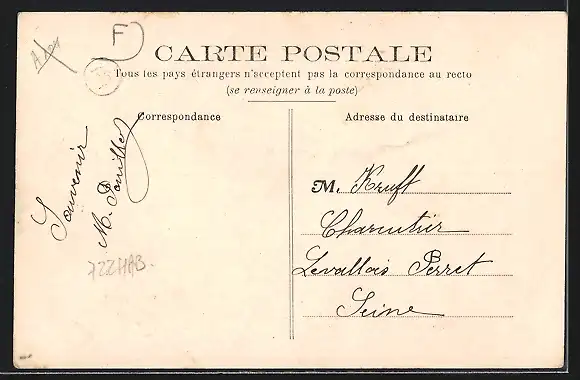 F
CARTE POSTALE
Tous les pays étrangers n'acceptent pas la correspondance au recto
(se renseigner à la poste)
Correspondance
Souvenir
M.
Adresse du destinataire
M. Kruft
Charcutier
Levallois Perret
Seine